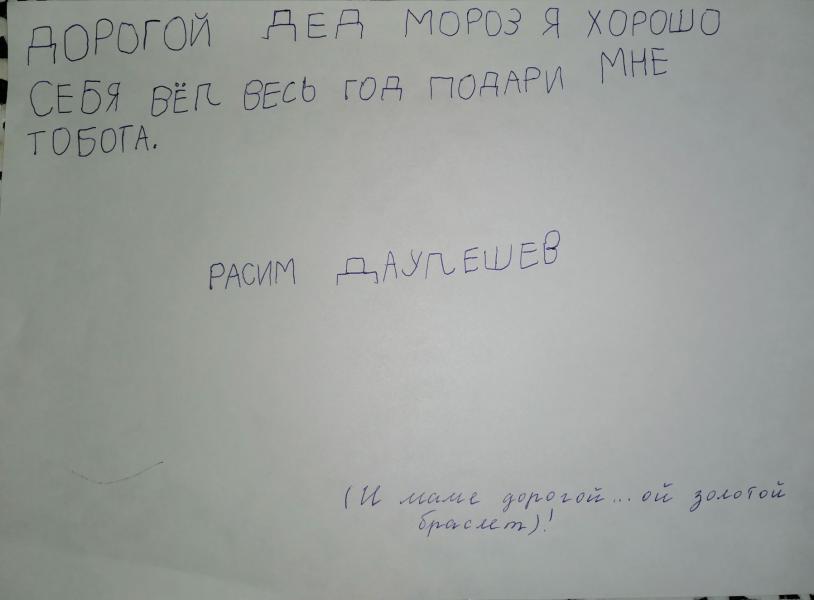 ДОРОГОЙ ДЕД МОРОЗ Я ХОРОШО
СЕБЯ ВЁЛ ВЕСЬ ГОД ПОДАРИ МНЕ
ТОБОТА.
РАСИМ ДАУЛЕШЕВ
(И маме дорогой...ой золотой
браслет)!